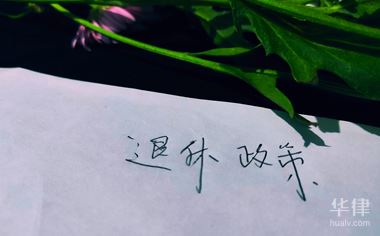 退休 政策
华律
hualv.com